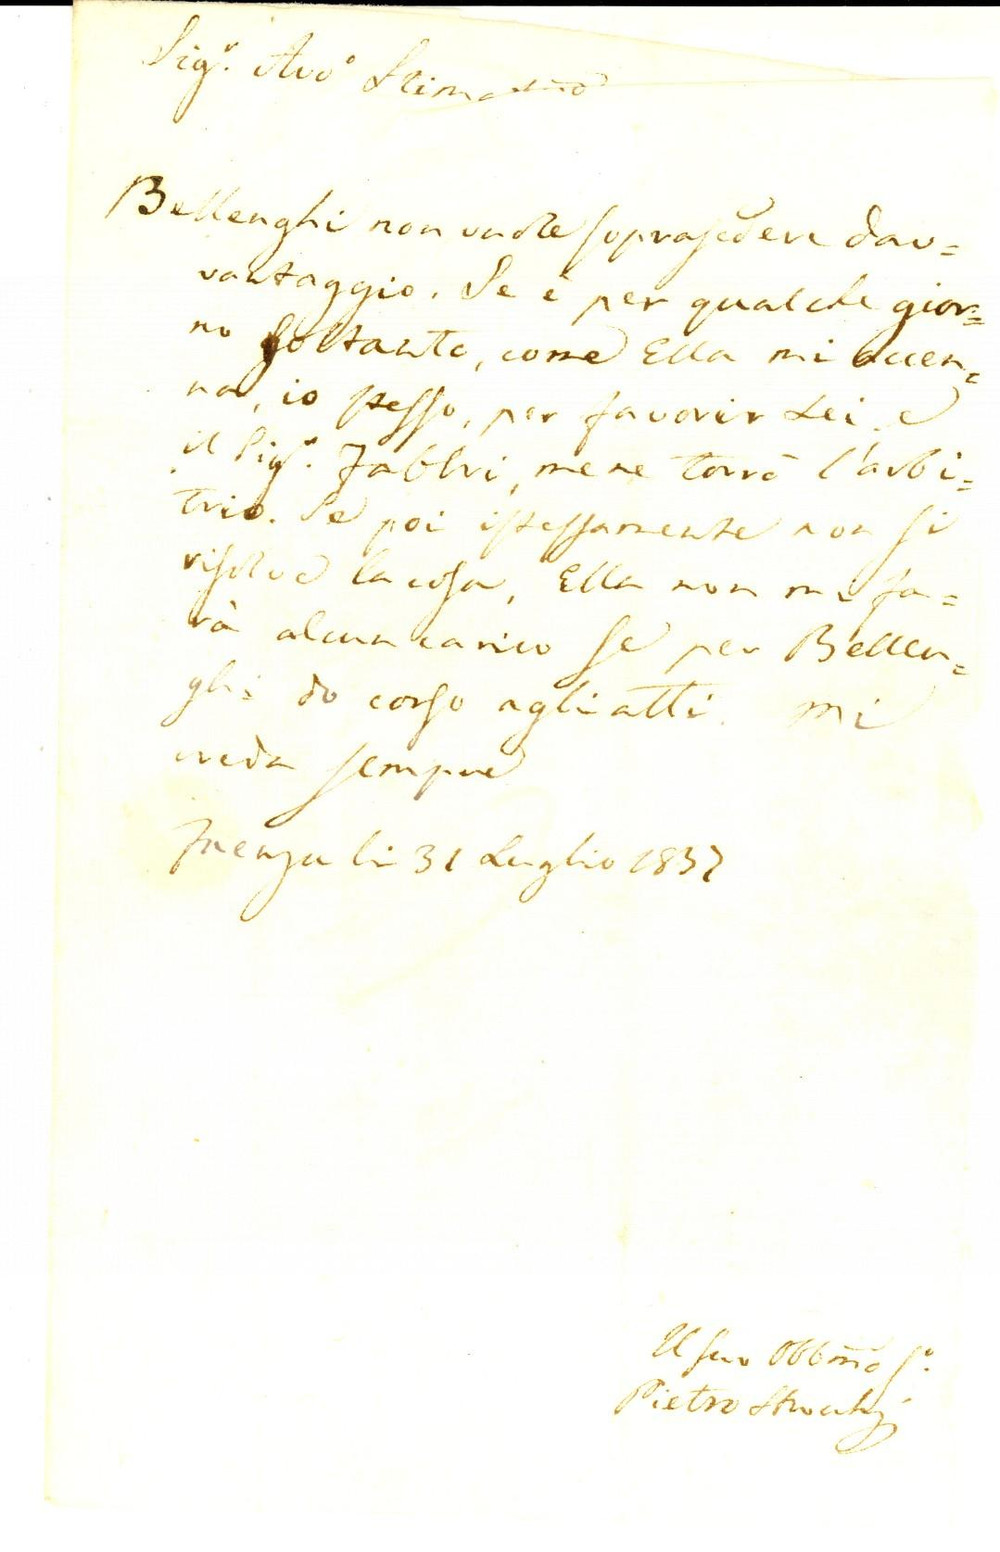 Sig.r Avv.o Stimatmo
Bellenghi non vuole soprasedere dav=
vantaggio. Se è per qualche gior=
no soltanto, come Ella mi accen=
na, io stesso, per favorir Lei e
il Sig.r Fabbri, me ne torrò l'arbi=
trio. Se poi istessamente non si
risolve la cosa, Ella non mi fa=
rà alcun carico se per Bellen=
ghi do corso agli atti. Mi
creda sempre
Faenza li 31 Luglio 1837
Il suo Obbmo S.e
Pietro